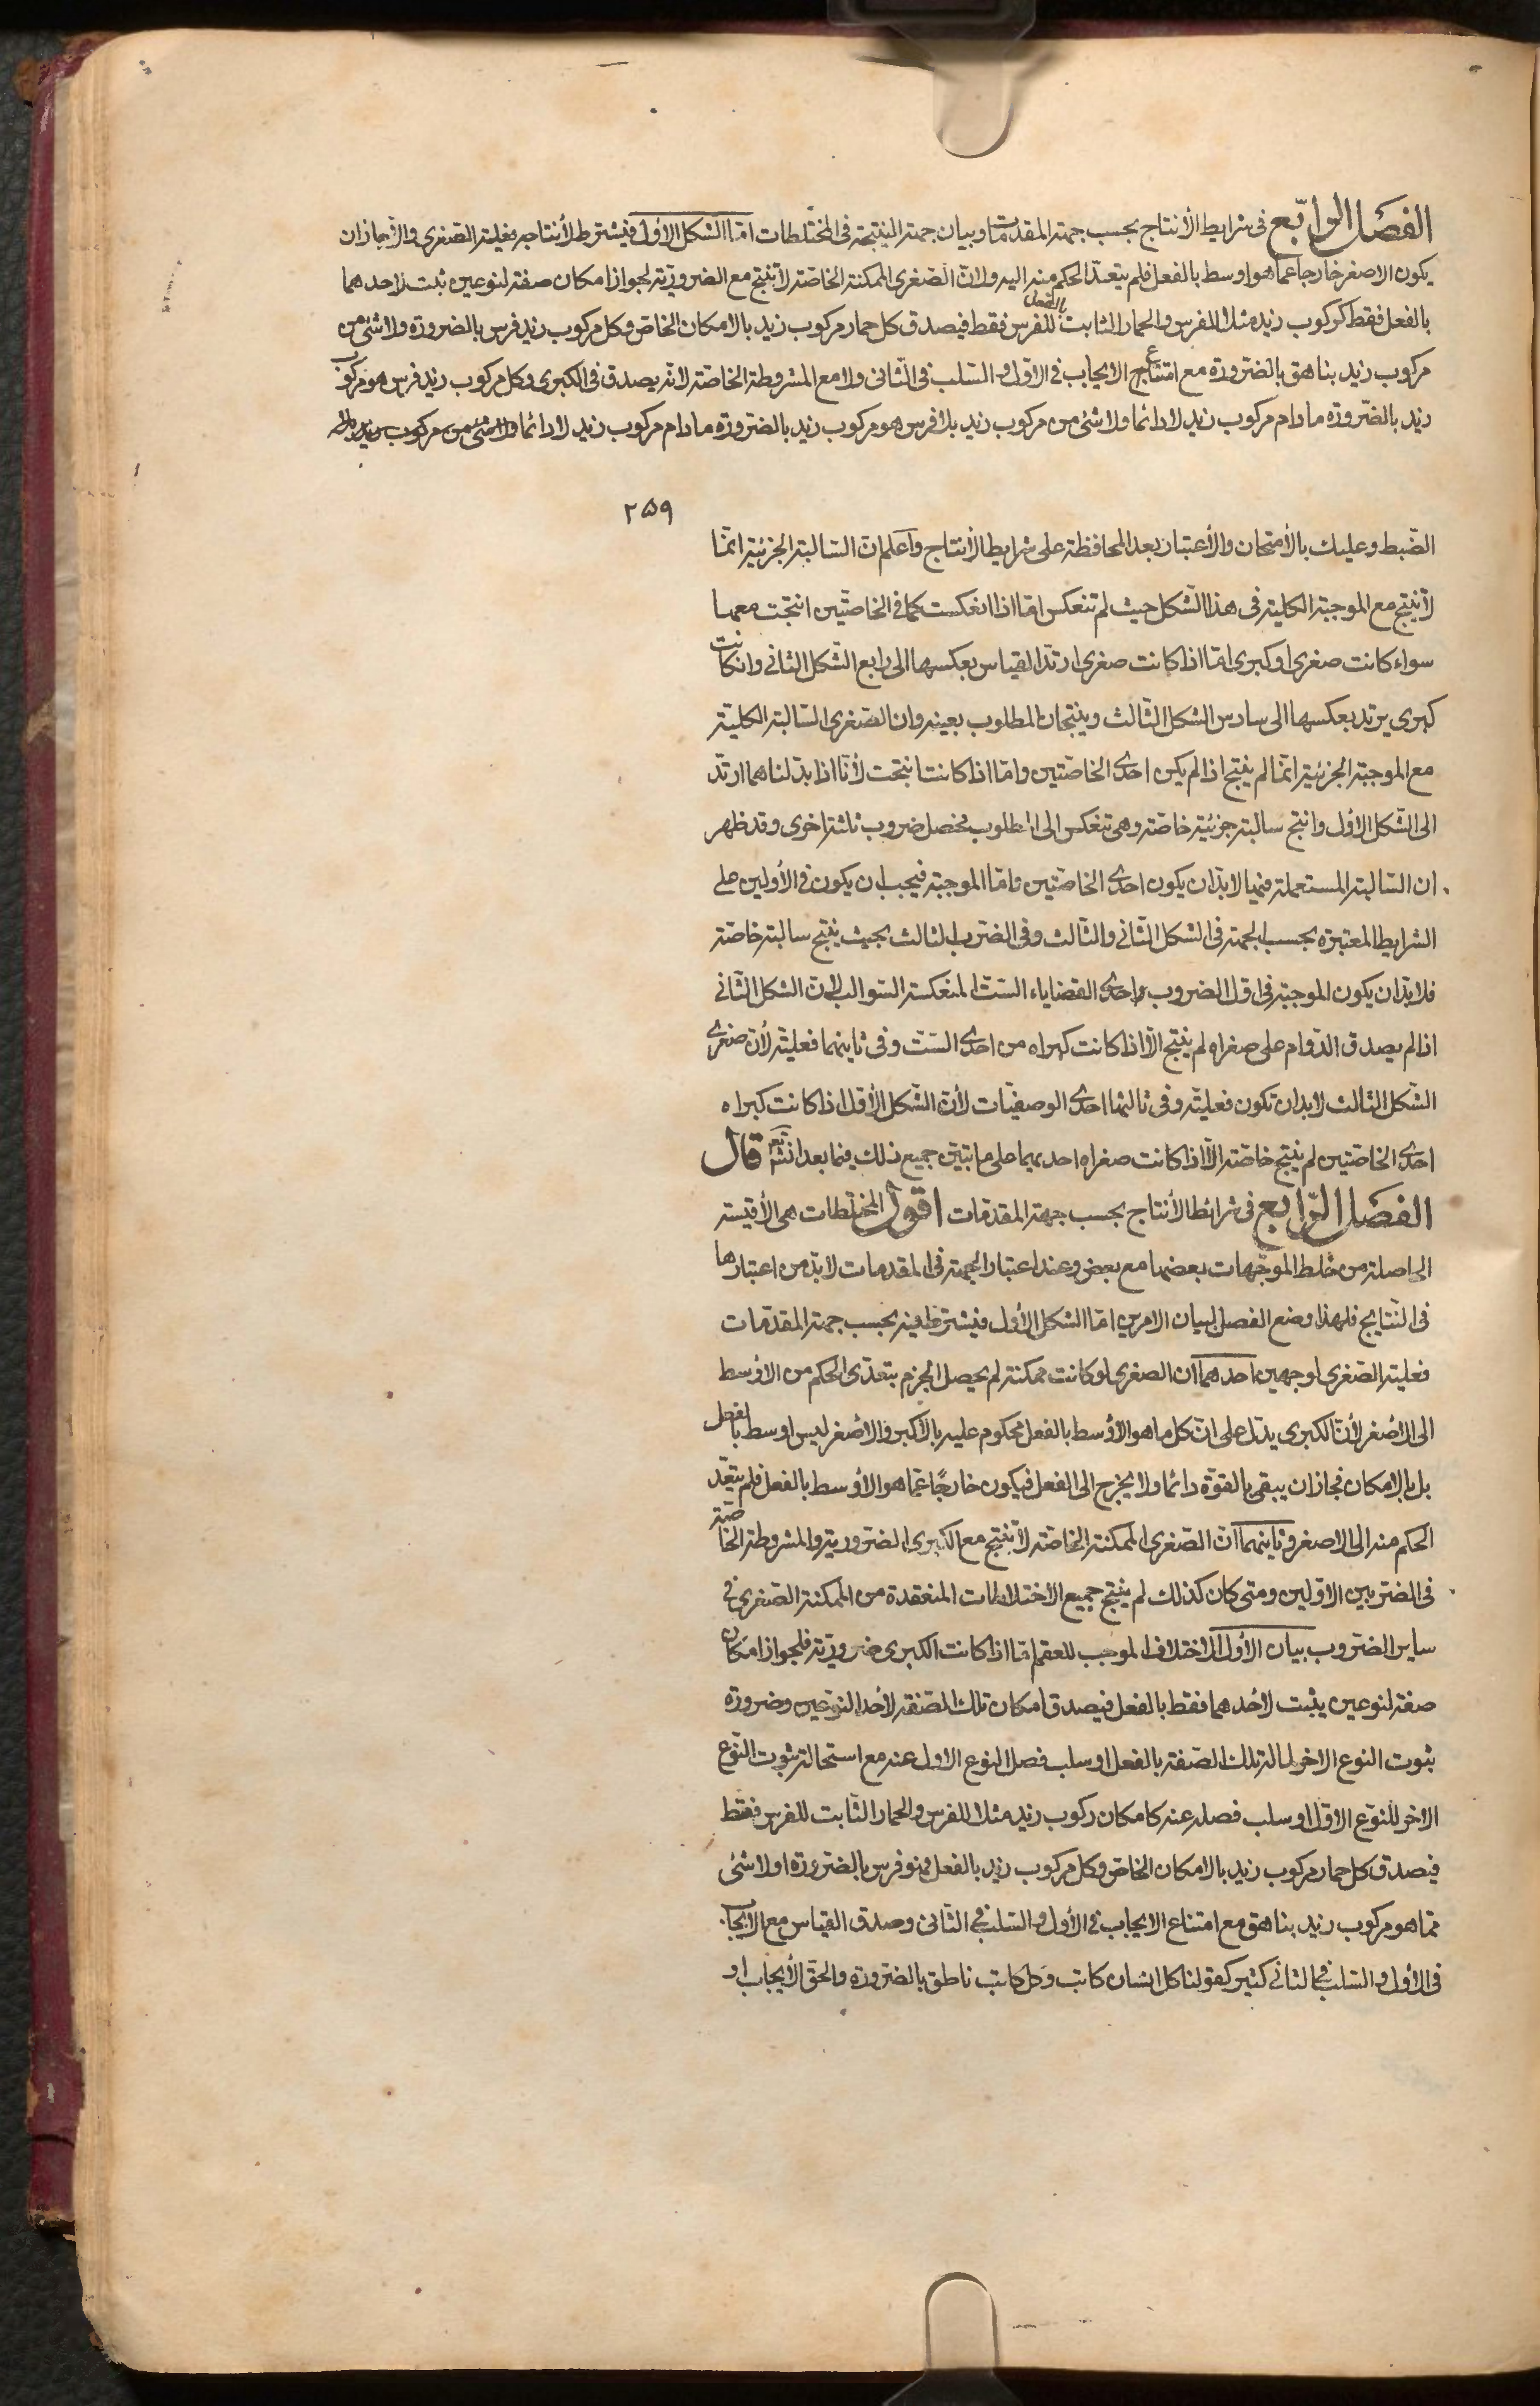 الفصل الرابع في شرايط الأنتاج بحسب جهة المقدمات وبيان جهة النتيجة في المختلطات امّا الشكل الاوّل فيشترط لأنتاجه فعلية الصغرى والّا لجاز ان
يكون الاصغر خارجا عما هو اوسط بالفعل فلم يتعدّ الحكم منه اليه ولانّ الصّغرى الممكنة الخاصّة لا تنتج مع الضروريّة لجواز امكان صفة لنوعين ثبت لاحدهما
بالفعل فقط كركوب زيد مثلا للفرس والحمار الثابت بالفعل للفرس فقط فيصدق كل حمار مركوب زيد بالامكان الخاصّ وكل مركوب زيد فرس بالضرورة ولا شئ من
مركوب زيد بناهق بالضّرورة مع امتناع الايجاب في الاوّل والسّلب في الثاني ولا مع المشروطة الخاصّة لانّه يصدق في الكبرى وكل مركوب زيد فرس هو مركوب
زيد بالضّرورة مادام مركوب زيد لا دائما ولا شئ من مركوب زيد بلا فرس هو مركوب زيد بالضرورة مادام مركوب زيد لا دائما ولا شئ من مركوب زيد
٢٥٩
الضّبط وعليك بالأمتحان والأعتبار بعد المحافظة على شرايط الأنتاج وٱعلم انّ السّالبة الجزئيّة انّما
لا تنتج مع الموجبة الكلية في هذا الشّكل حيث لم تنعكس امّا اذا انعكست كما في الخاصّتين انتجت معها
سواء كانت صغرى او كبرى امّا اذا كانت صغرى ارتدّ القياس بعكسها الى رابع الشّكل الثاني وان كانت
كبرى يرتد بعكسها الى سادس الشكل الثّالث وينتجان المطلوب بعينه وان الصّغرى السّالبة الكليّة
مع الموجبة الجزئيّة انّما لم ينتج اذا لم يكن احدى الخاصّتين وامّا اذا كانت انتجت لأنّا اذا بدّلناهما ارتدّ
الى الشّكل الأوّل وانتج سالبة جزئيّة خاصّة وهي تنعكس الى المطلوب فحصل ضروب ثلثة اخرى وقد ظهر
ان السّالبة المستعملة فيها لا بدّ ان يكون احدى الخاصّتين وامّا الموجبة فيجب ان يكون في الأولين على
الشرايط المعتبرة بحسب الجهة في الشكل الثّاني والثّالث وفي الضّرب الثالث بحيث ينتج سالبة خاصّة
فلا بدّ ان يكون الموجبة في اوّل الضروب احدى القضاياء السّتّ المنعكسة السّوالب لانّ الشكل الثّاني
اذا لم يصدق الدّوام على صغراه لم ينتج الّا اذا كانت كبراه من احدى السّتّ وفي ثانيهما فعليّة لأنّ صغرى
الشّكل الثالث لا بد ان تكون فعليّة وفي ثالثها احدى الوصفيّات لأنّ الشّكل الأوّل اذا كانت كبراه
احدى الخاصّتين لم ينتج خاصّة الّا اذا كانت صغراه احديهما على ما يتبيّن جميع ذلك فيما بعد انشَه تع قال
الفصل الرّابع في شرائط الأنتاج بحسب جهة المقدمات اقول المختلطات هي الأقيسة
الحاصلة من خلط الموجّهات بعضها مع بعض وعند اعتبار الجهة في المقدمات لا بدّ من اعتبارها
في النّتايج فلهذا وضع الفصل لبيان الامرين امّا الشكل الأوّل فيشترط فيه بحسب جهة المقدّمات
فعليّة الصّغرى لوجهين احدهما ان الصغرى لو كانت ممكنة لم يحصل الجزم بتعدّى الحكم من الاوسط
الى الأصغر لأنّ الكبرى يدلّ على انّ كل ما هو الأوسط بالفعل محكوم عليه بالأكبر والأصغر ليس اوسط بالفعل
بل بالامكان فجاز ان يبقى بالقوّة دائما ولا يخرج الى الفعل فيكون خارجًا عمّا هو الأوسط بالفعل فلم يتعدّ
الحكم منه الى الاصغر وثانيهما انّ الصّغرى الممكنة الخاصّة لا تنتج مع الكبرى الضّروريّة والمشروطة الخاصّة
في الضّربين الاوّلين ومتى كان كذلك لم ينتج جميع الاختلاطات المنعقدة من الممكنة الصّغرى في
ساير الضّروب بيان الأوّل الاختلاف الموجب للعقم امّا اذا كانت الكبرى ضروريّة فلجواز امكان
صفة لنوعين يثبت لأحدهما فقط بالفعل فيصدق امكان تلك الصّفة لأحد النوعين وضرورة
ثبوت النوع الاخر لما له تلك الصّفة بالفعل او سلب فصل النوع الاول عنه مع استحالة ثبوت النّوع
الاخر للنّوع الاوّل او سلب فصله عنه كامكان ركوب زيد مثلا للفرس والحمار الثّابت للفرس فقط
فيصدق كل حمار مركوب زيد بالامكان الخاصّ وكل مركوب زيد بالفعل فهو فرس بالضّرورة او لا شئ
ممّا هو مركوب زيد بناهق مع امتناع الايجاب في الأول والسّلب في الثّاني وصدق القياس مع الايجاب
في الأول والسّلب في الثاني كثير كقولنا كل انسان كاتب وكل كاتب ناطق بالضّرورة والحقّ الأيجاب او